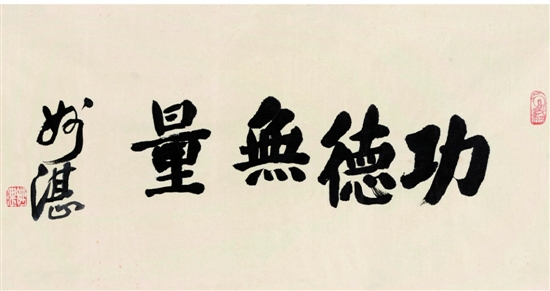 功德無量
妙湛